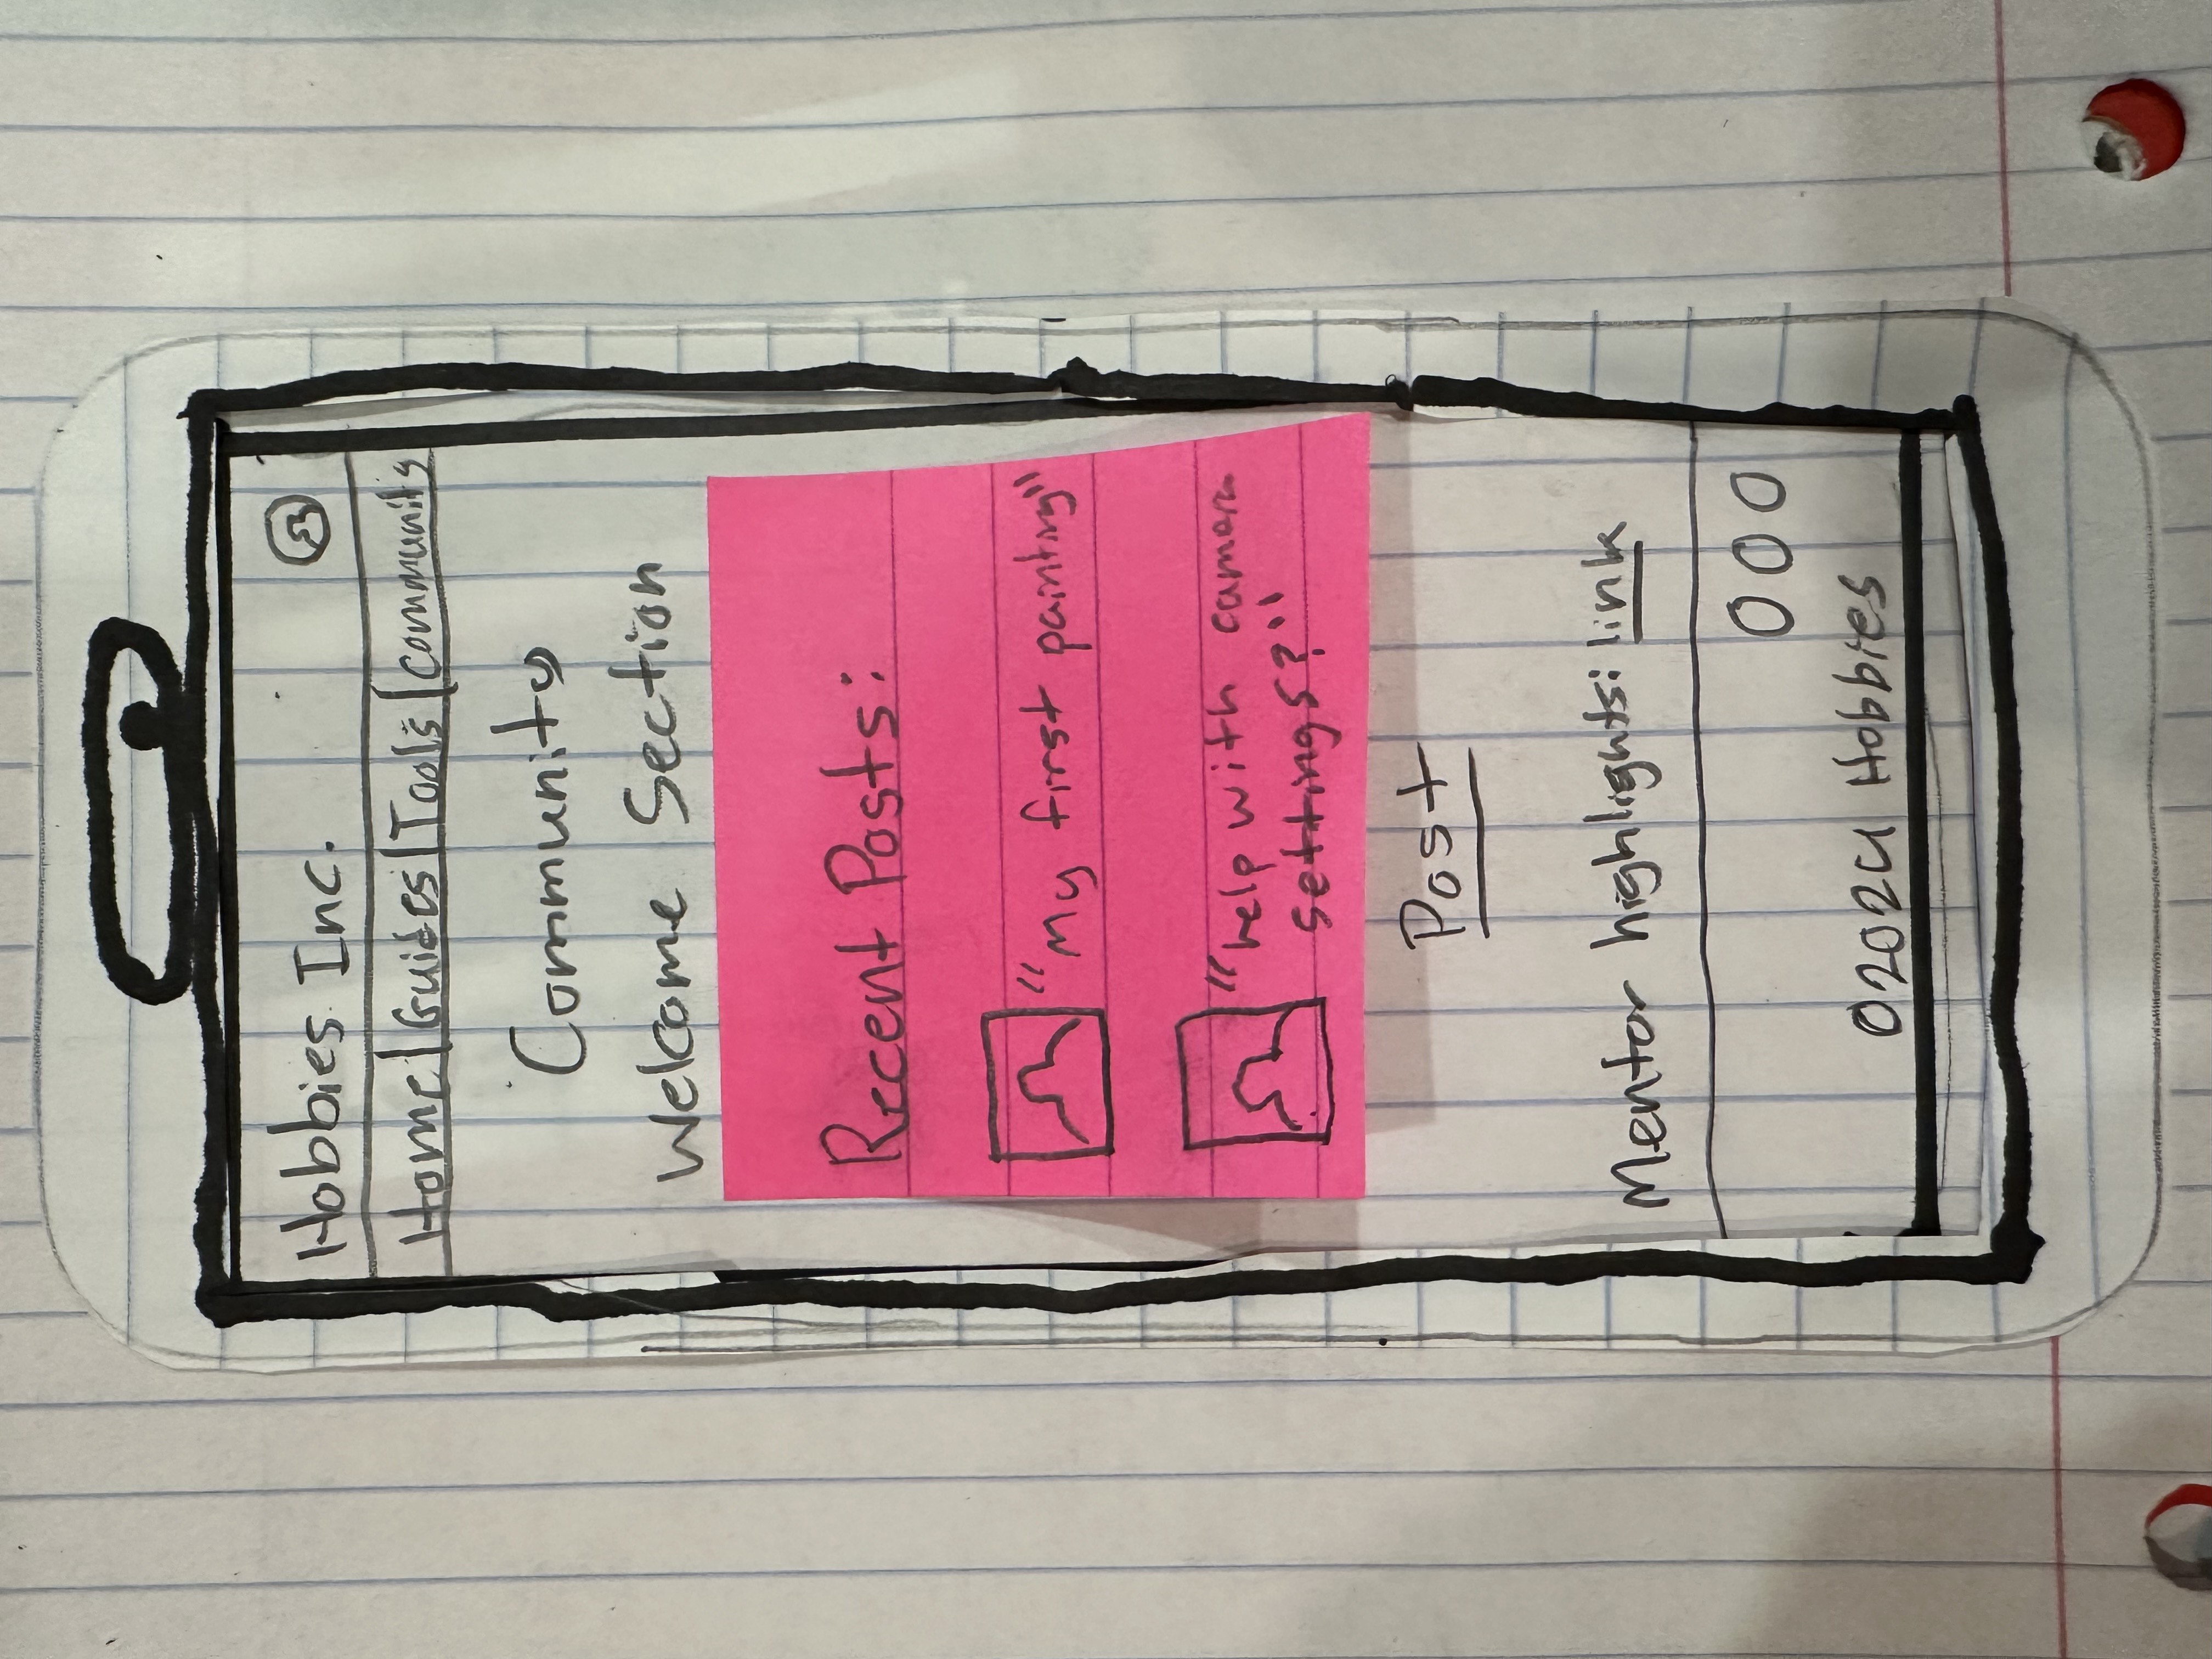 Hobbies Inc.
Home | Guides | Tools | Community
Community
Welcome Section
Recent Posts:
"My first painting"
"help with camera
settings?"
Post
Mentor highlights: link
000
©2024 Hobbies